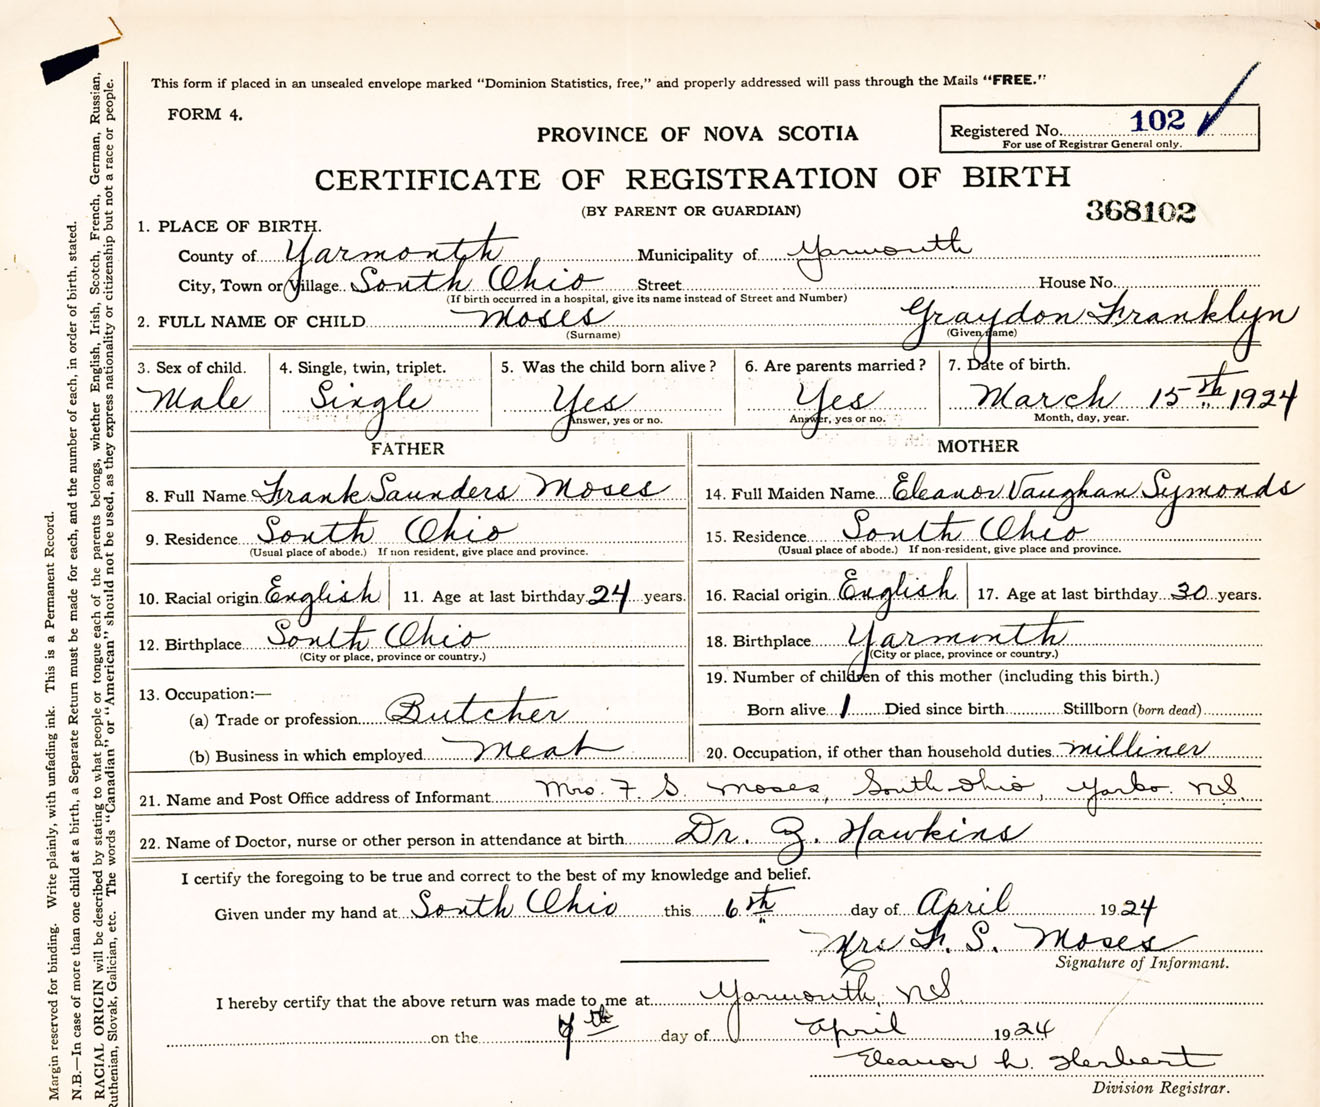 This form if placed in an unsealed envelope marked “Dominion Statistics, free,” and properly addressed will pass through the Mails “FREE.”
FORM 4.
PROVINCE OF NOVA SCOTIA
Registered No. 102
For use of Registrar General only.
CERTIFICATE OF REGISTRATION OF BIRTH
(BY PARENT OR GUARDIAN)
368102
1. PLACE OF BIRTH.
County of Yarmouth Municipality of Yarmouth
City, Town or Village South Ohio Street House No.
(If birth occurred in a hospital, give its name instead of Street and Number)
2. FULL NAME OF CHILD Moses Graydon Franklyn
(Surname) (Given name)
3. Sex of child. 4. Single, twin, triplet. 5. Was the child born alive? 6. Are parents married? 7. Date of birth.
Male Single Yes Yes March 15th 1924
Answer, yes or no. Answer, yes or no. Month, day, year.
FATHER MOTHER
8. Full Name Frank Saunders Moses 14. Full Maiden Name Eleanor Vaughan Symonds
9. Residence South Ohio 15. Residence South Ohio
(Usual place of abode.) If non resident, give place and province. (Usual place of abode.) If non-resident, give place and province.
10. Racial origin English 11. Age at last birthday 24 years. 16. Racial origin English 17. Age at last birthday 30 years.
12. Birthplace South Ohio 18. Birthplace Yarmouth
(City or place, province or country.) (City or place, province or country.)
13. Occupation:— 19. Number of children of this mother (including this birth.)
(a) Trade or profession Butcher Born alive 1 Died since birth Stillborn (born dead)
(b) Business in which employed Meat 20. Occupation, if other than household duties milliner
21. Name and Post Office address of Informant Mrs. F. S. Moses, South Ohio, Yarko. N.S.
22. Name of Doctor, nurse or other person in attendance at birth Dr. Z. Hawkins
I certify the foregoing to be true and correct to the best of my knowledge and belief.
Given under my hand at South Ohio this 6th day of April 1924
Mrs F. S. Moses
Signature of Informant.
I hereby certify that the above return was made to me at Yarmouth, N.S.
on the 7th day of April 1924
Eleanor L. Herbert
Division Registrar.
Margin reserved for binding. Write plainly, with unfading ink. This is a Permanent Record.
N.B.—In case of more than one child at a birth, a Separate Return must be made for each, and the number of each, in order of birth, stated.
RACIAL ORIGIN will be described by stating to what people or tongue each of the parents belongs, whether English, Irish, Scotch, French, German, Russian,
Ruthenian, Slovak, Galician, etc. The words “Canadian” or “American” should not be used, as they express nationality or citizenship but not a race or people.